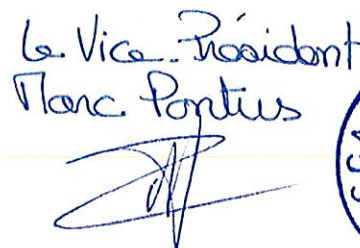 Le Vice-Président
Marc Pontius